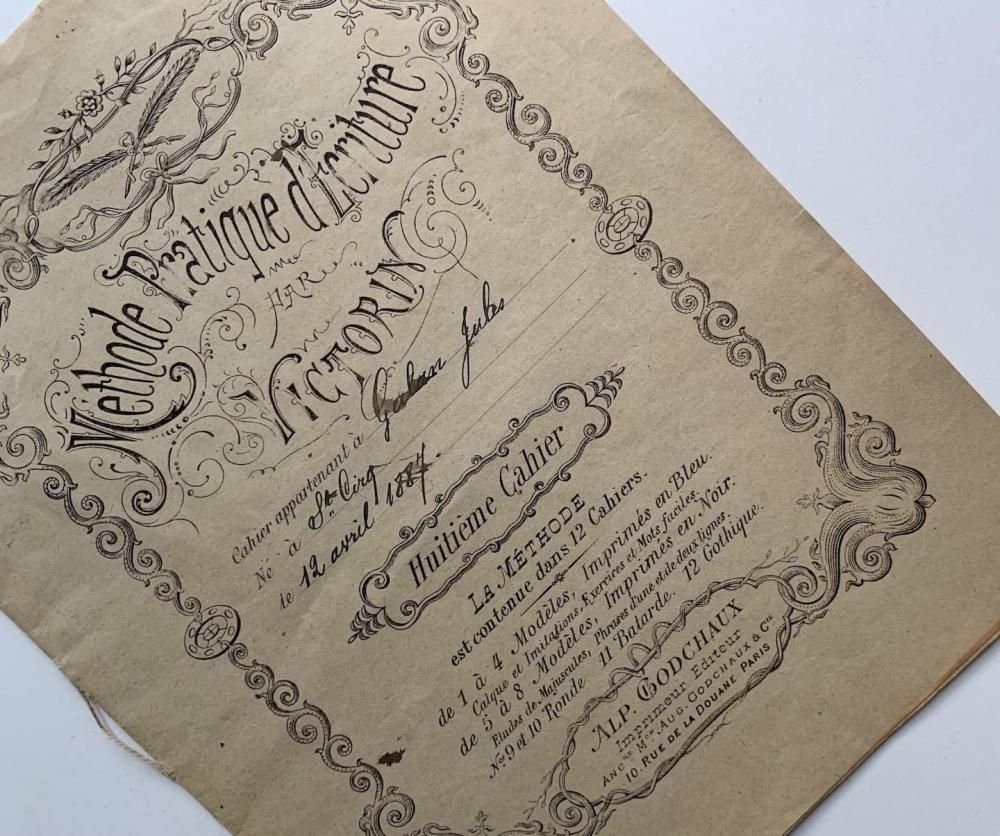 Méthode Pratique d'Ecriture
PAR
VICTORIN
Cahier appartenant à Galan Jules
Né à St. Cirq
le 12 avril 1884.
Huitième Cahier
LA MÉTHODE
est contenue dans 12 Cahiers.
de 1 à 4 Modèles, Imprimés en Bleu.
Calque et Imitations, Exercices et Mots faciles.
de 5 à 8 Modèles, Imprimés en Noir.
Etudes de Majuscules, Phrases d'une et de deux lignes.
Nos 9 et 10 Ronde 11 Batarde. 12 Gothique.
ALP. GODCHAUX
Imprimeur Editeur
ANCNE MON AUG. GODCHAUX & CIE
10, RUE DE LA DOUANE PARIS